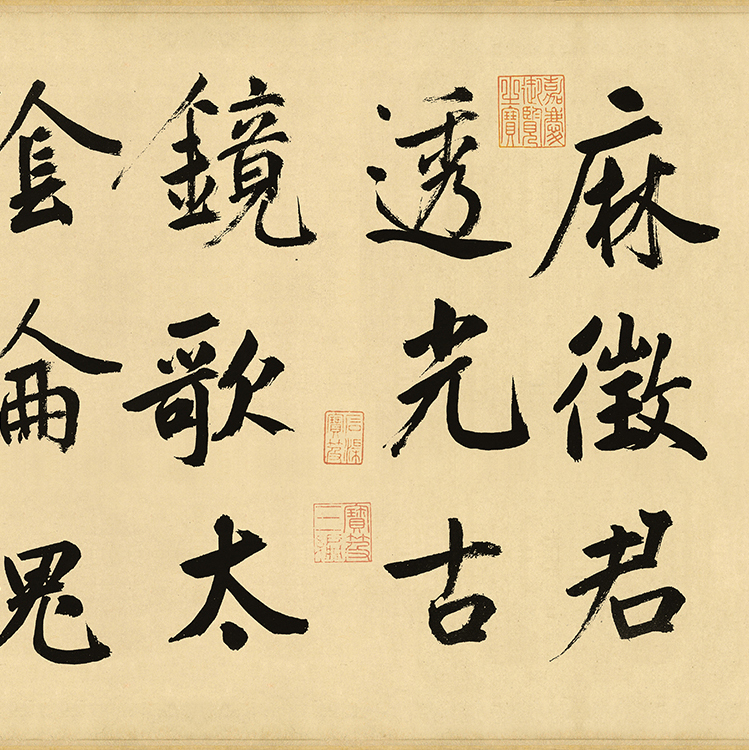 麻徵君
嘉慶御覽之寶
透光古
石渠寶笈
寶笈三編
鏡歌太